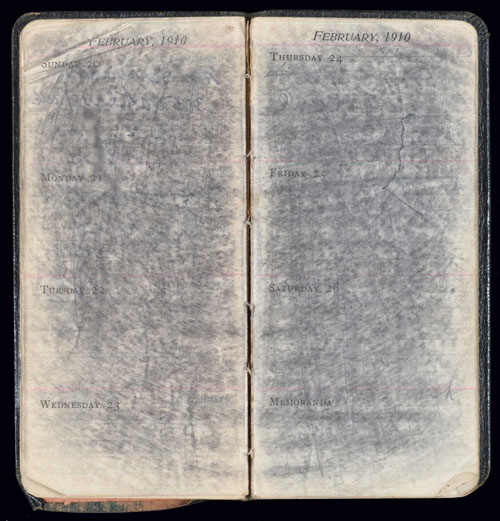 FEBRUARY, 1910
SUNDAY 20
MONDAY 21
TUESDAY 22
WEDNESDAY 23
FEBRUARY, 1910
THURSDAY 24
FRIDAY 25
SATURDAY 26
MEMORANDA